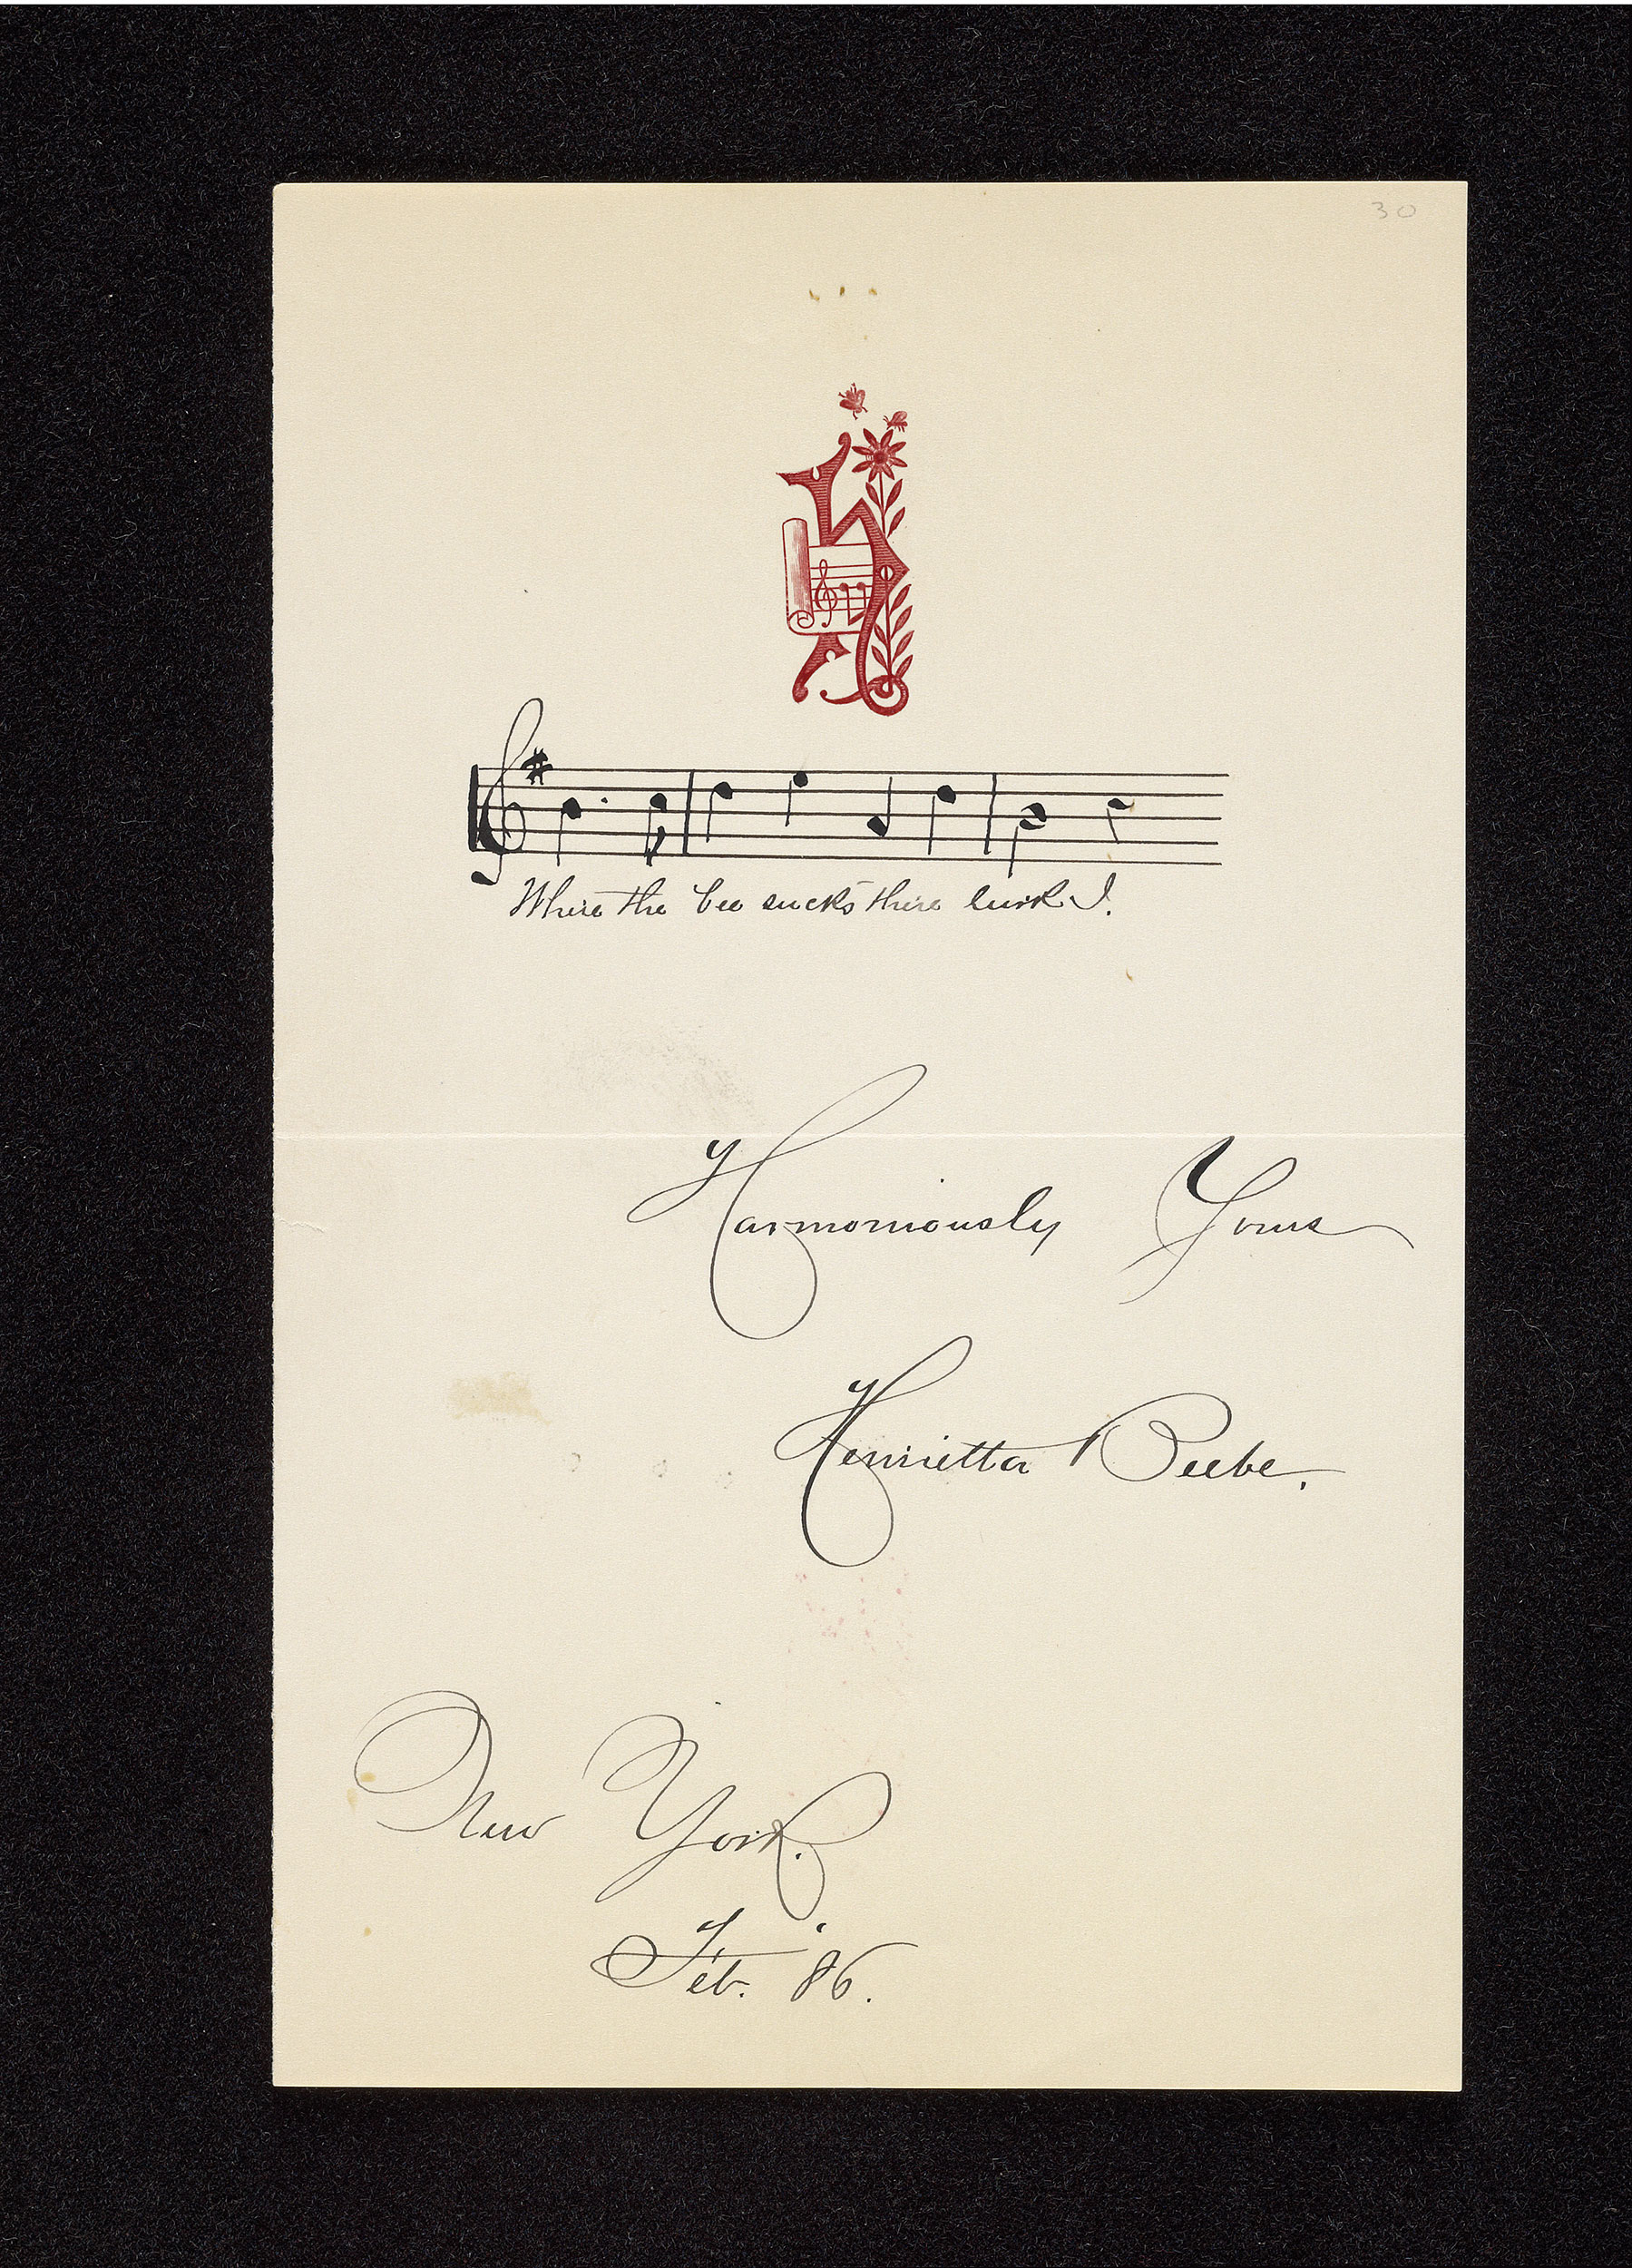 30
Where the bee sucks there lurk I.
Harmoniously Yours
Henrietta Beebe.
New York.
Feb. '86.